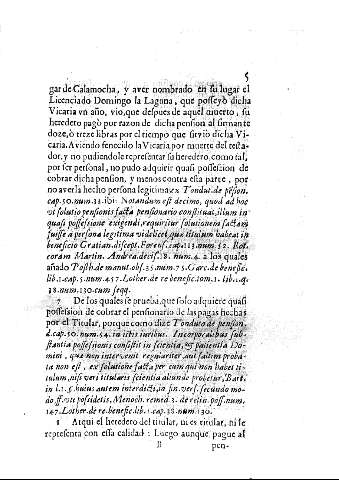 5
gar de Calamocha, y aver nombrado en su lugar el
Licenciado Domingo la Laguna, que posseyò dicha
Vicaria vn año, vio, que despues de aquel muerto, su
heredero pagò por razon de dicha pension al firmante
doze, ò treze libras por el tiempo que sirviò dicha Vi-
caria. Aviendo fenecido la Vicaria por muerte del testa-
dor, y no pudiendole representar su heredero, como tal,
por ser personal, no pudo adquirir quasi possession de
cobrar dicha pension, y menos contra esta parte, por
no averla hecho persona legitima ex Tondut. de pension.
cap. 50. num. 32. ibi: Notandum est decimo, quod ad hoc
vt solutio pensionis facta pensionario constituat illum in
quasi possessione exigendi, requiritur solutionem factam
fuisse à persona legitima videlicet quæ titulum habeat in
beneficio Gratian. discept. Forens. cap. 113. num. 52. Rot.
coram Martin. Andrea decis. 18. num. 4. a los quales
añado Posth. de manut. obs. 35. num. 75. Garc. de benefic.
lib. 1. cap. 5. num. 457. Lother. de re benefic. tom. 1. lib. 1. q.
38. num. 130. cum seqq.
7 De los quales se prueba, que solo adquiere quasi
possession de cobrar el pensionario de las pagas hechas
por el Titular, porque como dize Tonduto de pension.
d. cap. 50. num. 54. in istis autem Incorporalibus sub-
stantia possessionis consistit in scientia, & patientia Do-
mini, quæ non intervenit regulariter aut saltim proba-
ta non est, ex solutione facta per eum qui non habet ti-
tulum, nisi vera titularis scientia aliunde probetur, Bart.
in l. 1. §. huius autem interdicti, in fin. vers. secundo mo-
do ff. vti possidetis, Menoch. remed. 3. de retin. poss. num.
147. Lother. de re benefic. lib. 1. cap. 38. num. 130.
8 Atqui el heredero del titular, ni es titular, ni le
representa con esta calidad: Luego aunque pague al
B pen-